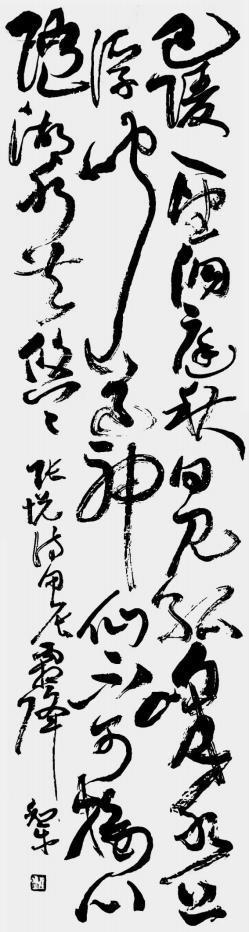 巴陵一望洞庭秋日见孤峰水上
浮闻道神仙不可接心
随湖水共悠々
张说诗甲辰霜降